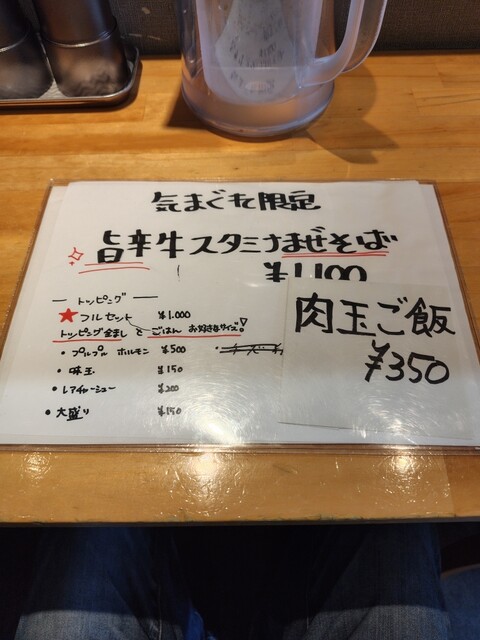 気まぐれ限定
旨辛牛スタミナまぜそば
¥1,100
トッピング
★フルセット ¥1.000
トッピング全ましと ごはん お好きなサイズ!
・プルプル ホルモン ¥500
・味玉 ¥150
・レアチャーシュー ¥200
・大盛り ¥150
肉玉ご飯
¥350